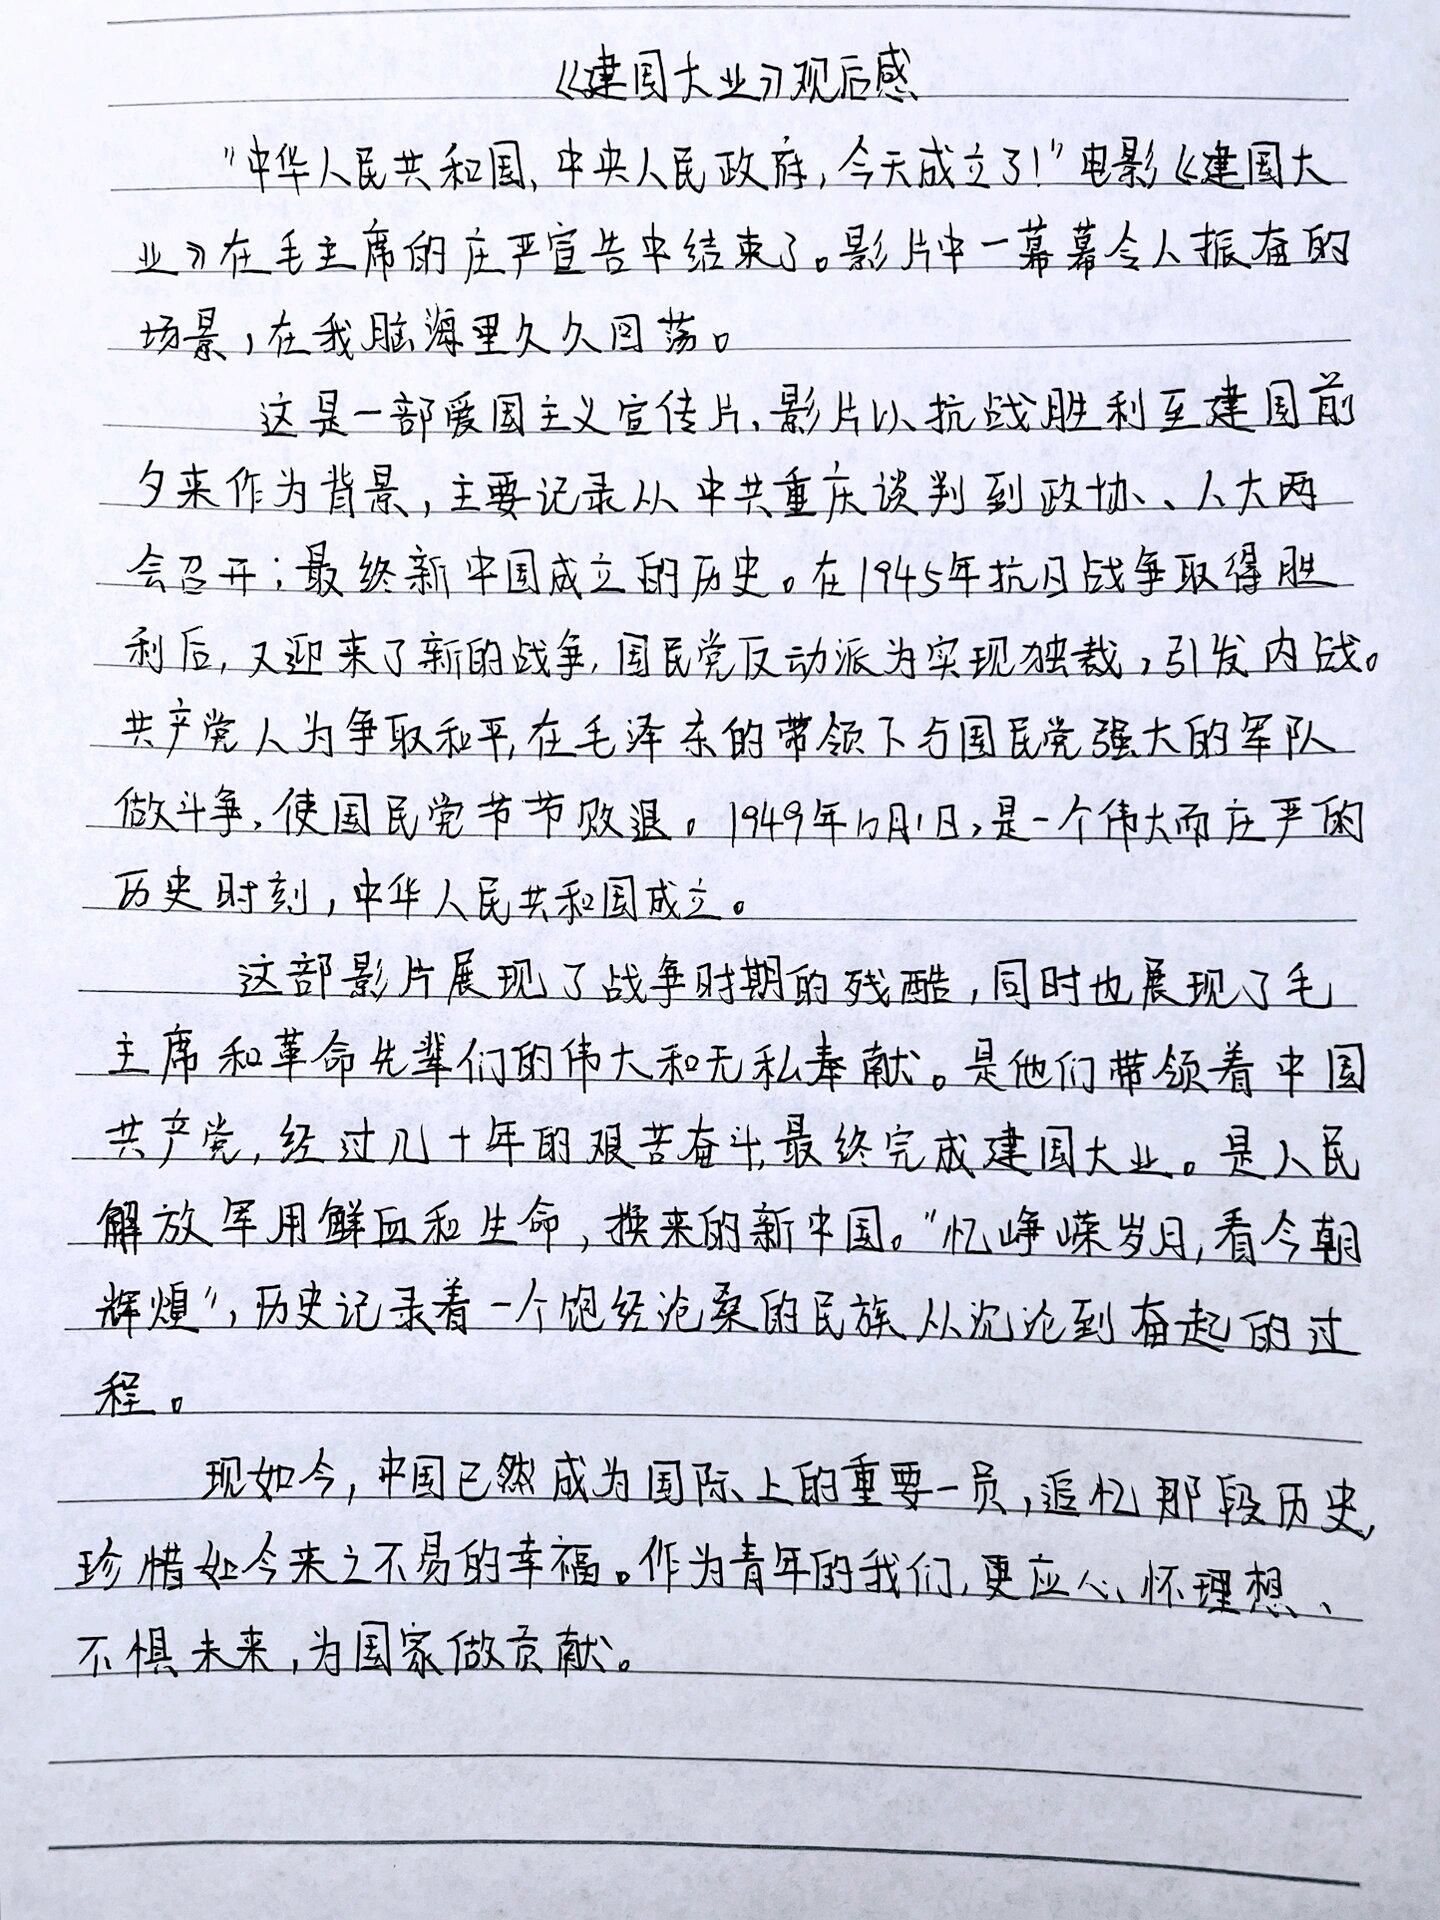 《建国大业》观后感
"中华人民共和国,中央人民政府,今天成立了!"电影《建国大
业》在毛主席的庄严宣告中结束了。影片中一幕幕令人振奋的
场景,在我脑海里久久回荡。
这是一部爱国主义宣传片、影片以抗战胜利至建国前
夕来作为背景,主要记录从中共重庆谈判到政协、人大两
会召开;最终新中国成立的历史。在1945年抗日战争取得胜
利后,又迎来了新的战争,国民党反动派为实现独裁,引发内战。
共产党人为争取和平,在毛泽东的带领下与国民党强大的军队
做斗争,使国民党节节败退。1949年10月1日,是一个伟大而庄严的
历史时刻,中华人民共和国成立。
这部影片展现了战争时期的残酷,同时也展现了毛
主席和革命先辈们的伟大和无私奉献。是他们带领着中国
共产党,经过几十年的艰苦奋斗,最终完成建国大业。是人民
解放军用鲜血和生命,换来的新中国。"忆峥嵘岁月,看今朝
辉煌",历史记录着一个饱经沧桑的民族从沉沦到奋起的过
程。
现如今,中国已然成为国际上的重要一员,追忆那段历史,
珍惜如今来之不易的幸福。作为青年的我们,更应心怀理想、
不惧未来,为国家做贡献。